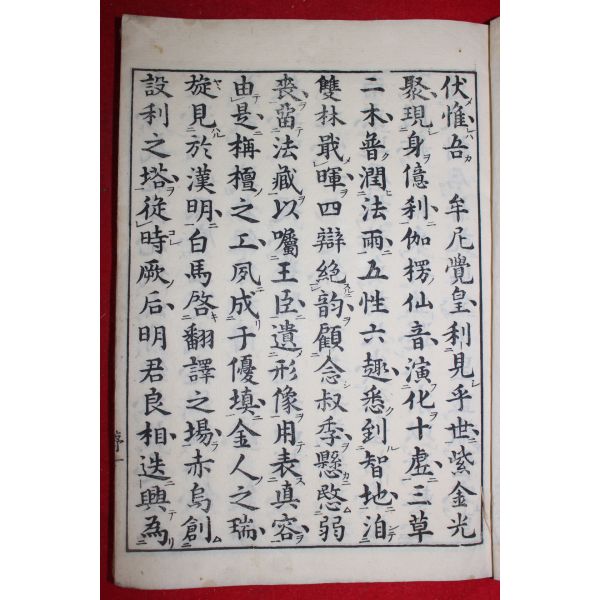 伏惟吾 牟尼覺皇利見乎世紫金光
聚現身億利伽楞仙音演化十虛三草
二木普潤法雨五性六趣悉到智地洎
雙林戢暉四辯絕韵顧念叔季懸愍弱
喪畱法藏以囑王臣遺形像用表真容
由是栴檀之工夙成于優填金人之瑞
旋見於漢明白馬啓翻譯之場赤烏創
設利之塔從時厥后明君良相迭興為
序一